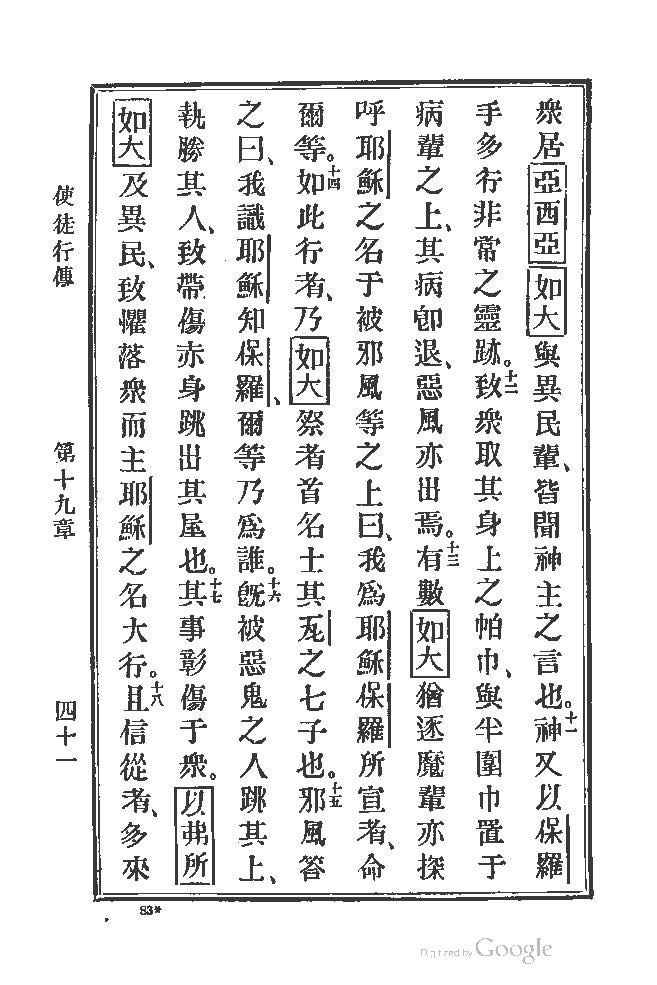 衆居亞西亞如大與異民輩、皆聞神主之言也。十一神又以保羅
手多行非常之靈跡。十二致衆取其身上之帕巾、與半圍巾置于
病輩之上、其病卽退、惡風亦出焉。十三有數如大猶逐魔輩亦探
呼耶穌之名于被邪風等之上曰、我爲耶穌保羅所宣者、命
爾等。十四如此行者、乃如大祭者首名士其瓦之七子也。十五邪風答
之曰、我識耶穌知保羅、爾等乃爲誰。十六旣被惡鬼之人跳其上、
執勝其人、致帶傷赤身跳出其屋也。十七其事彰傷于衆。以弗所
如大及異民、致懼落衆而主耶穌之名大行。十八且信從者、多來
使徒行傳
第十九章
四十一
83*
Digitized by Google